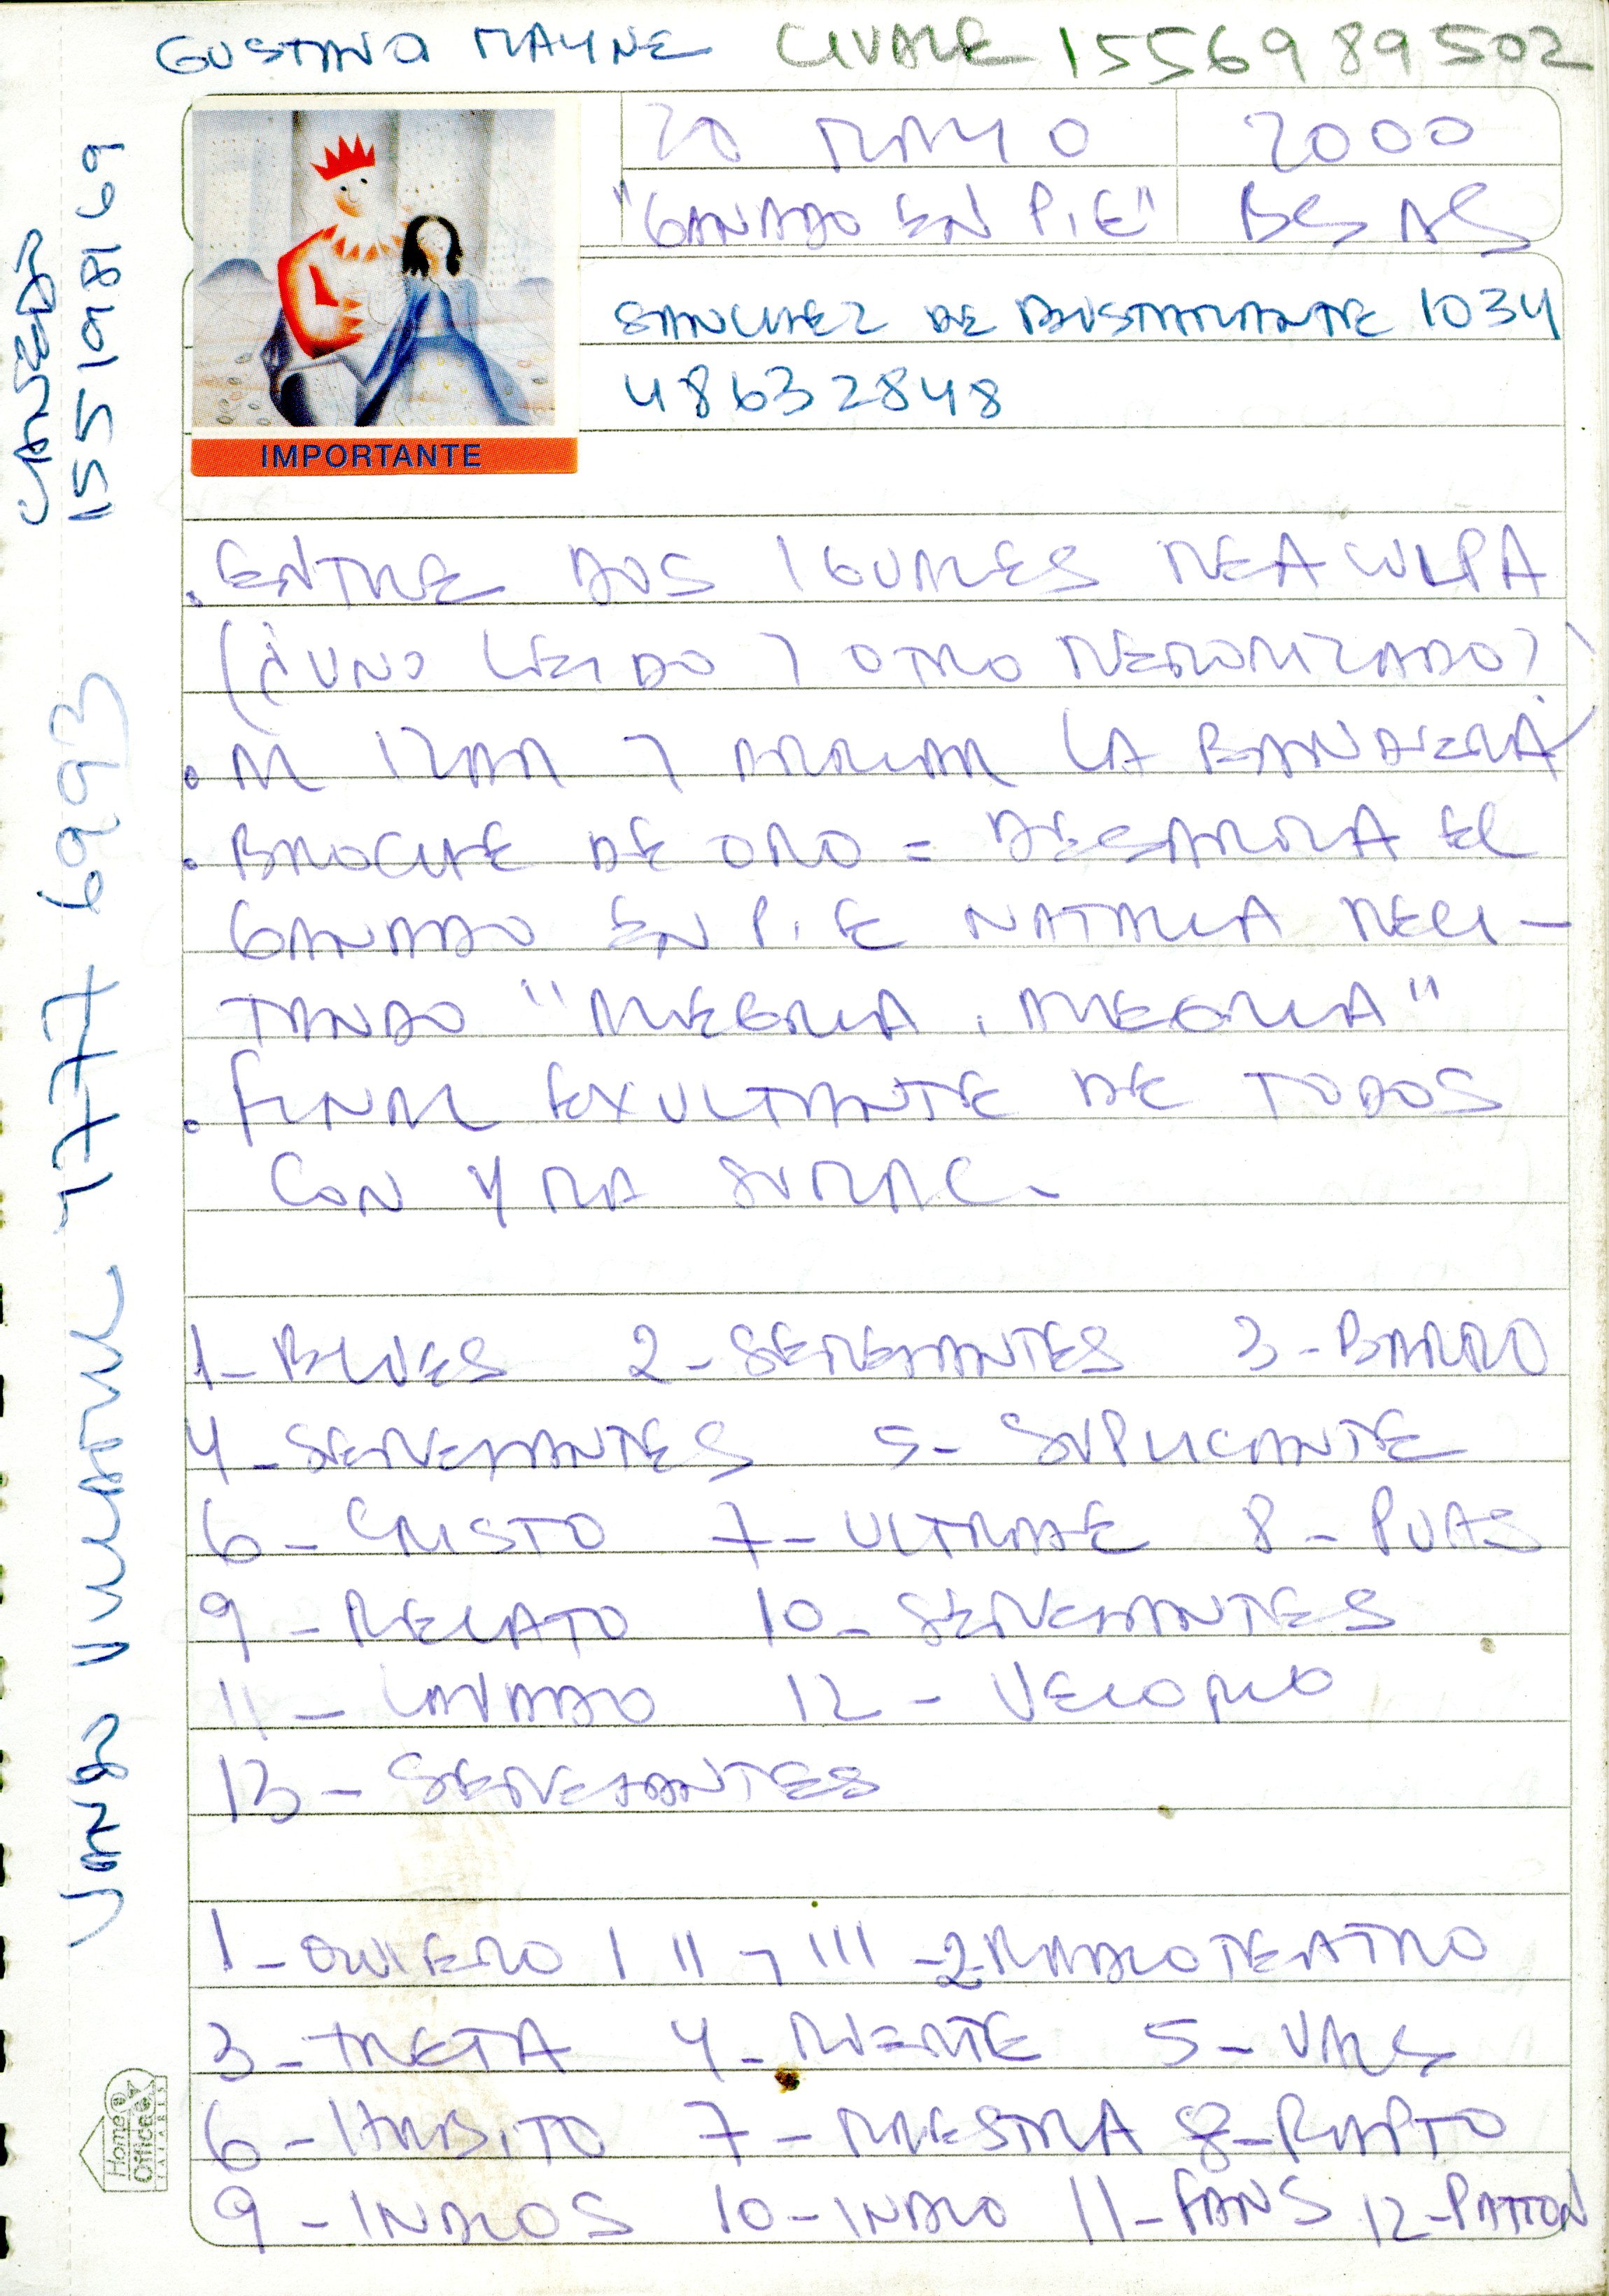 GUSTAVO MAYNE CIVALE 1556989502
20 MAYO 2000
"GANADO EN PIE" BS AS
SANCHEZ DE BUSTAMANTE 1034
48632848
IMPORTANTE
CANEDO
155198169
4777 6993
. ENTRE DOS IGUALES MEA CULPA
(¿UNO LEIDO Y OTRO MEMORIZADO?)
. AL IZAR Y ARRIAR LA BANDERA
. BROCHE DE ORO = DESARMA EL
GANADO EN PIE NATALIA RECI-
TANDO "ALEGRIA, ALEGRIA"
. FINAL EXULTANTE DE TODOS
CON YMA SUMAC-
1- BLUES 2- SEMEJANTES 3- BARRO
4- SEMEJANTES 5- SUPLICANTE
6- CRISTO 7- ULTRAJE 8- PUAS
9- RELATO 10- SEMEJANTES
11- LAVADO 12- VELORIO
13- SEMEJANTES
1- QUIERO I II Y III -2-RADIOTEATRO
3- TRETA 4- MUERTE 5- VALS
6- HABITO 7- MAESTRA 8- RAPTO
9- INDIOS 10- INDIO 11- FANS 12-PATTON
Home & Office